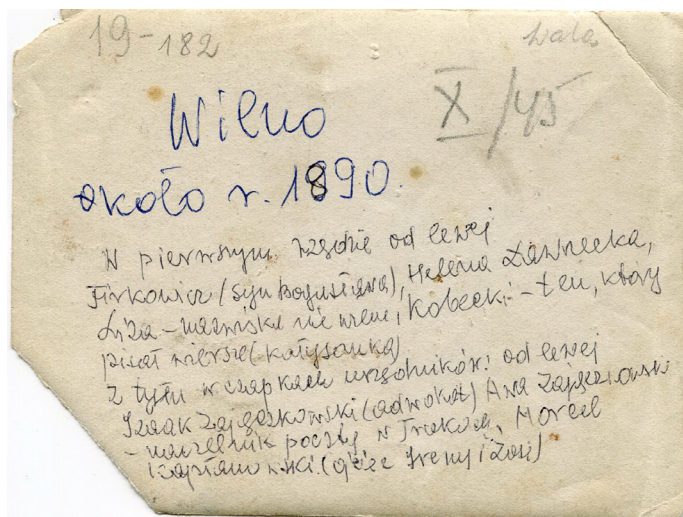 19-182
X/45
Wilno
około r. 1890.
W pierwszym rzędzie od lewej
Firkowicz (syn Bogusława), Helena Ławrecka,
Liza - nazwiska nie wiem, Kobecki - ten, który
pisał wiersze (kołysanka)
Z tyłu w czapkach urzędników: od lewej
Izaak Zajączkowski (adwokat) Ana Zajączkowski
- naczelnik poczty w Trokach, Marceli
(ojciec Ireny i Zosi)